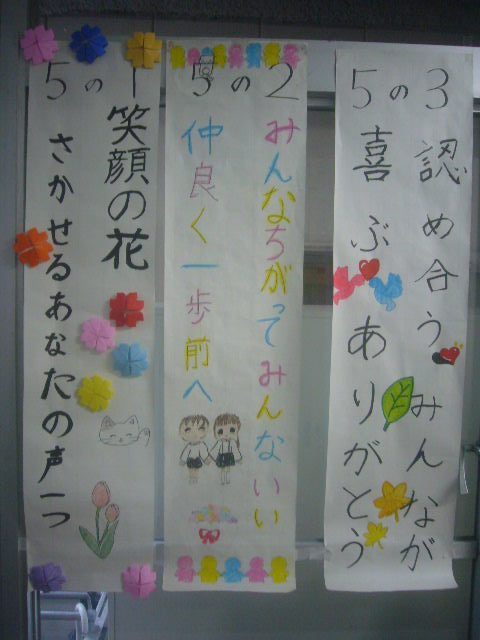 5の1
笑顔の花
さかせるあなたの声一つ
5の2
みんなちがってみんないい
仲良く一歩前へ
5の3
認め合うみんなが
喜ぶありがとう